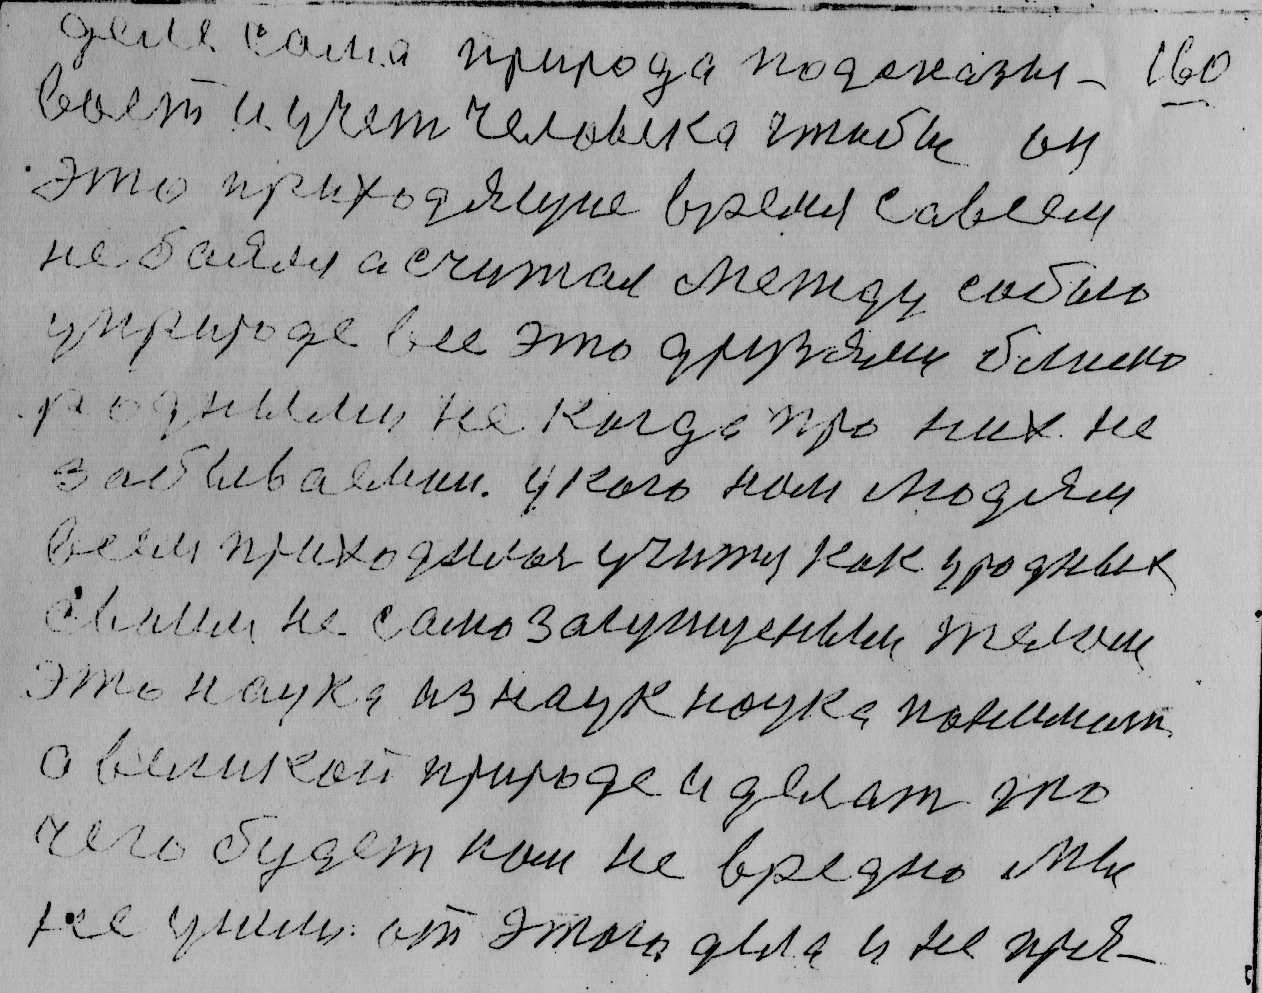 деле сама природа подсказы- 160
вает и учет человека чтобы он
это приходящие время савсем
не баялся а считал между собою
у природе все это друзями близко
родными не когда про них не
забываеми. у кого нам людям
всем приходился учится как у родных
своими не само защищеным телом
это наука из наук наука понимат
о великой природе и делат это
чего будет нам не вредно мы
не ушли от этого дела и не при-